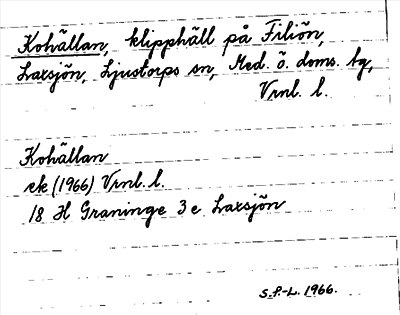 Kohällan, klipphäll på Filiön,
Laxsjön, Ljustorps sn, Med. ö. doms. tg,
Vnl. l.
Kohällan
ek (1966) Vnl. l.
18 H Graninge 3 e Laxsjön
S.f.-L. 1966.